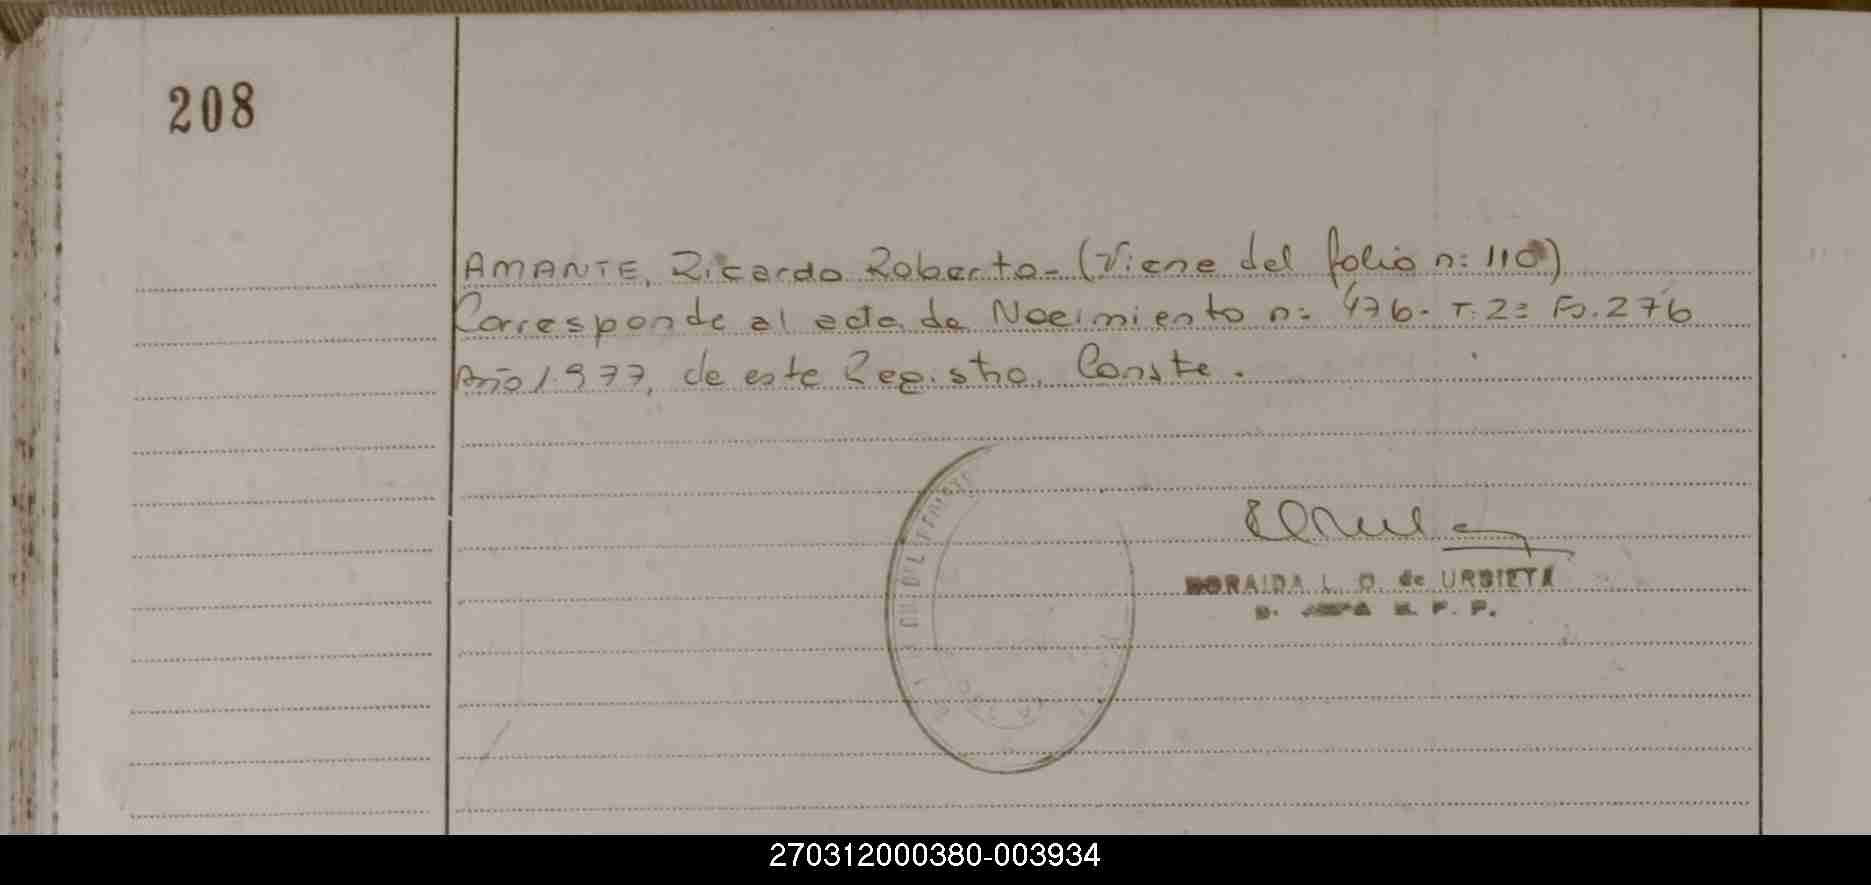 208
AMANTE, Ricardo Roberto - (Viene del folio n: 110)
Corresponde al acta de Nacimiento n: 476 - T: 2: Fo. 276
Año 1.977, de este Registro. Conste.
L. O. de URBIETA
270312000380-003934